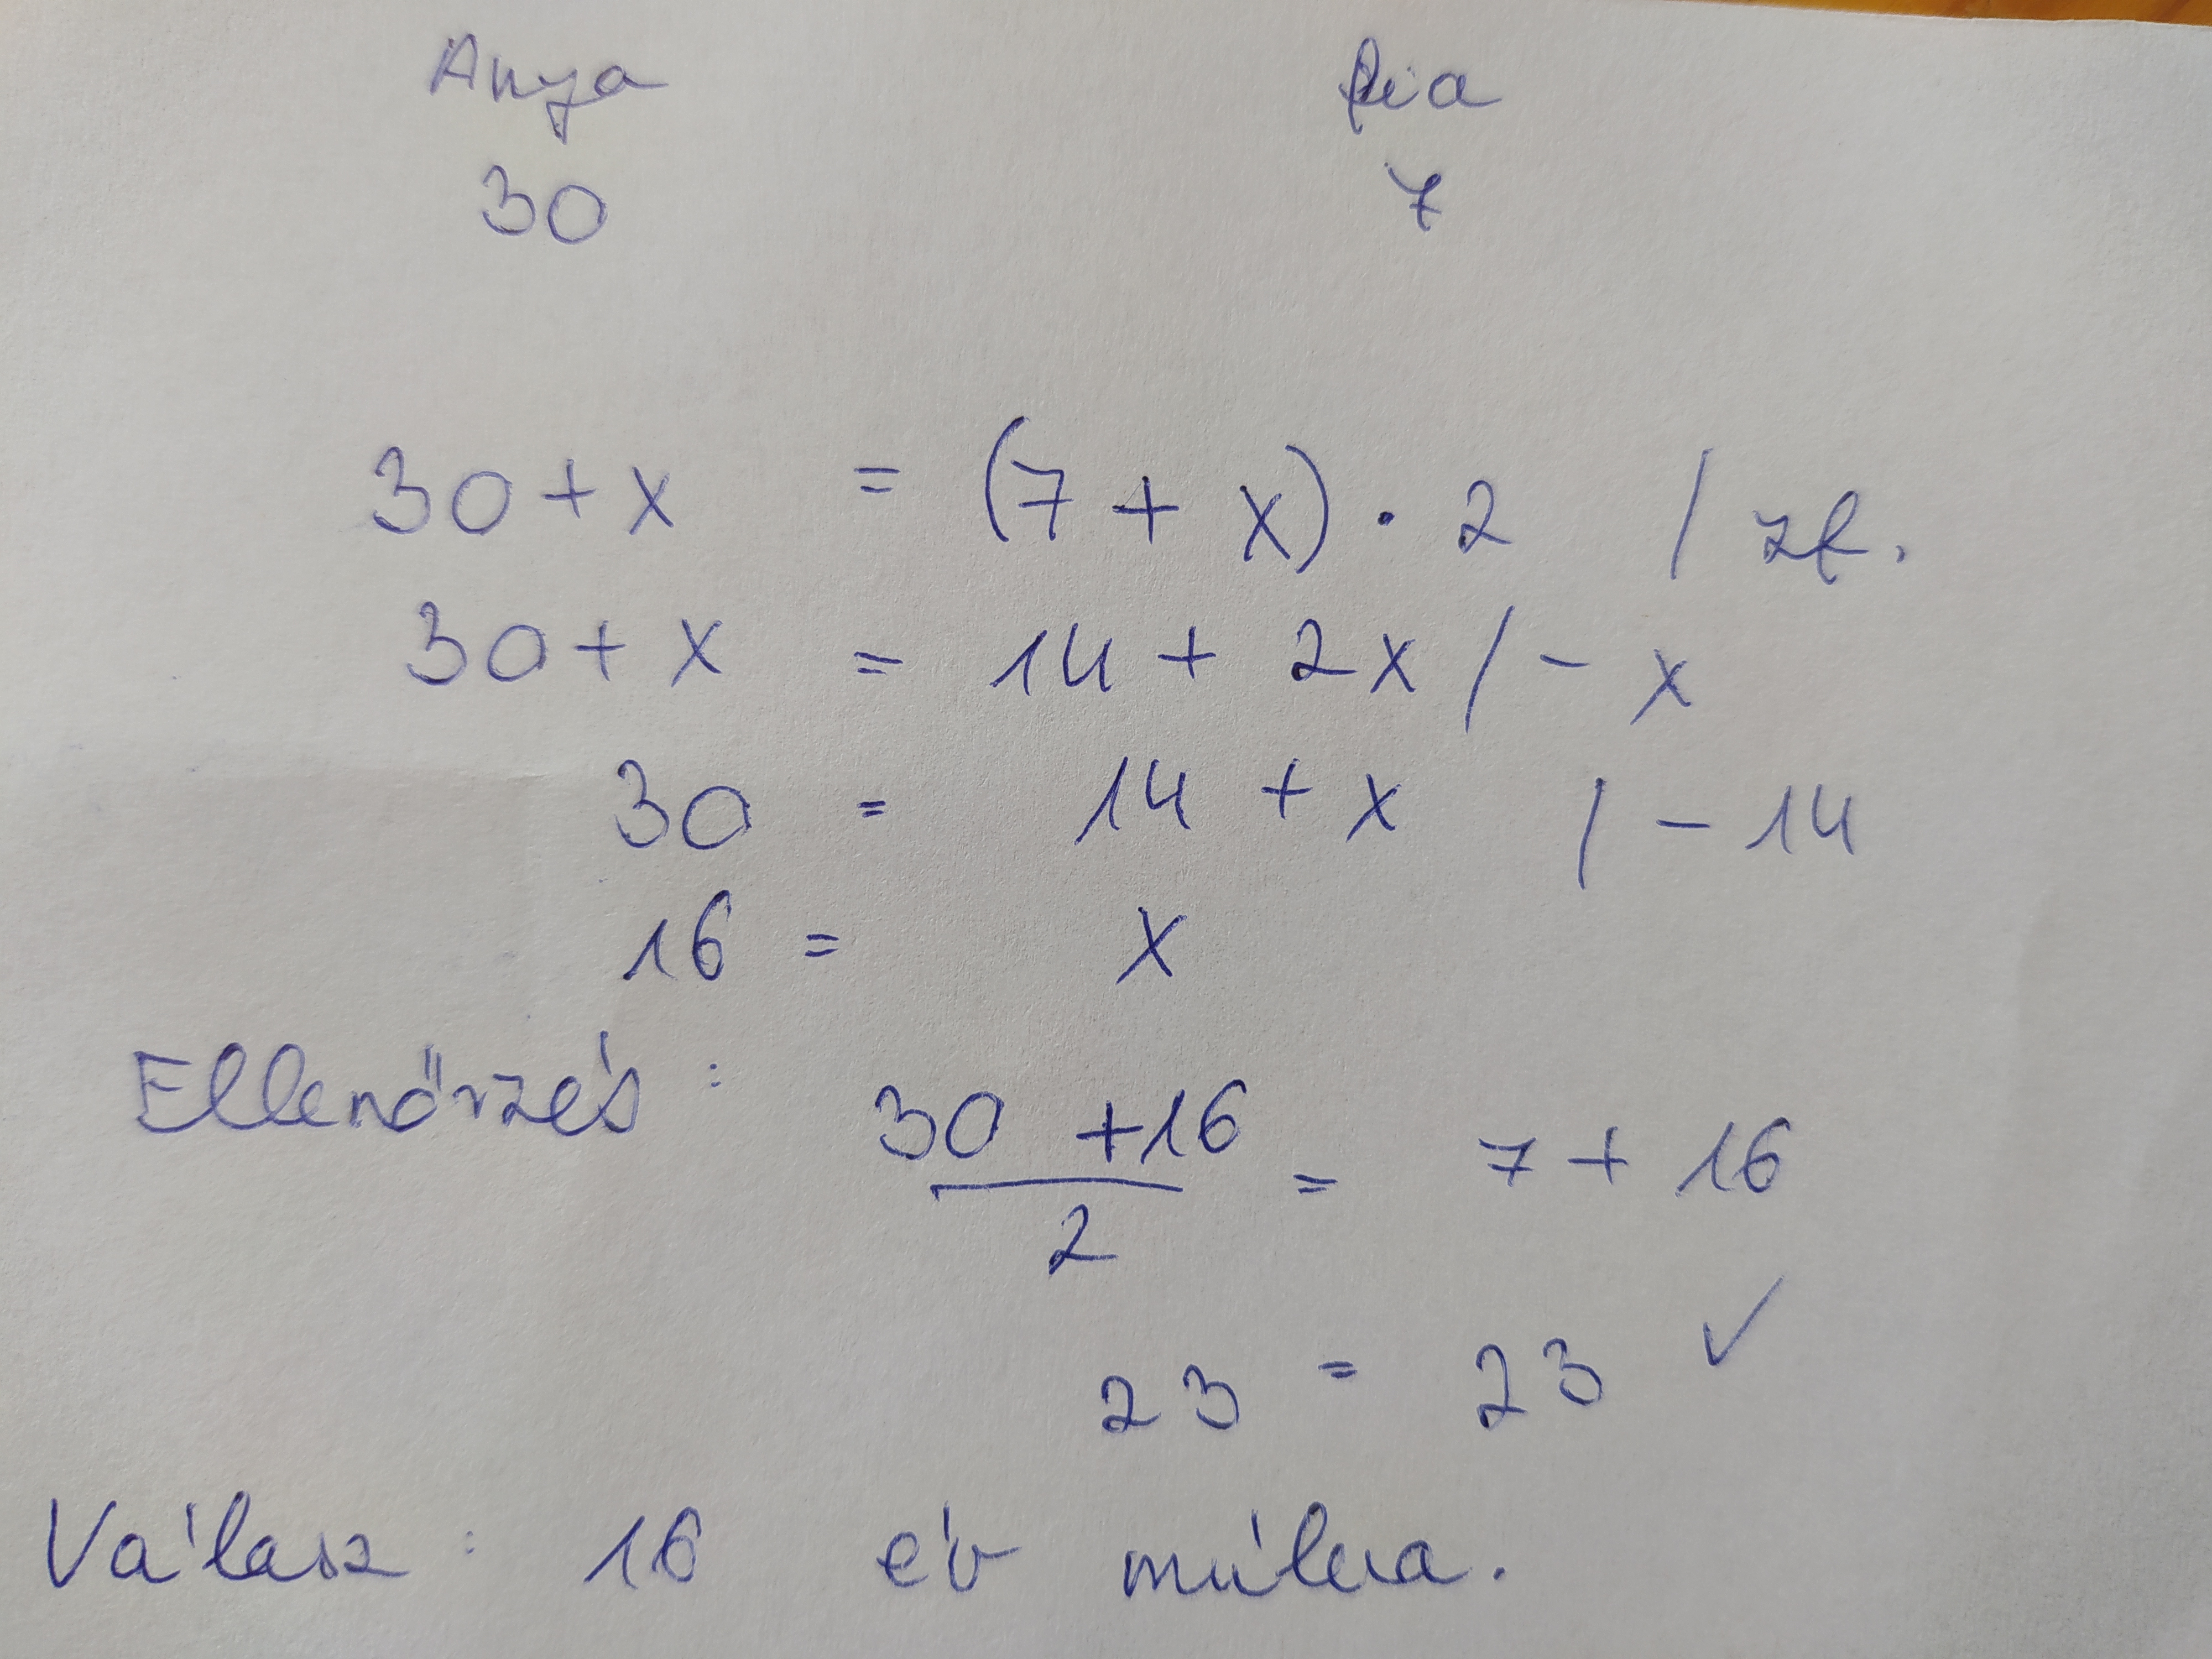 Anya fia
30 7
30 + x = (7 + x) · 2 / zf.
30 + x = 14 + 2x / - x
30 = 14 + x / - 14
16 = x
Ellenőrzés : 30 + 16 / 2 = 7 + 16
23 = 23 ✓
Válasz : 16 év múlva.